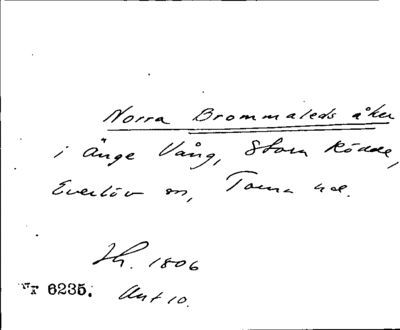 Norra Brommaleds åker
i Änge Vång, Stora Rödde,
Everlöv sn, Torna hd.
Sh. 1806
VI 6235. Akt 10.